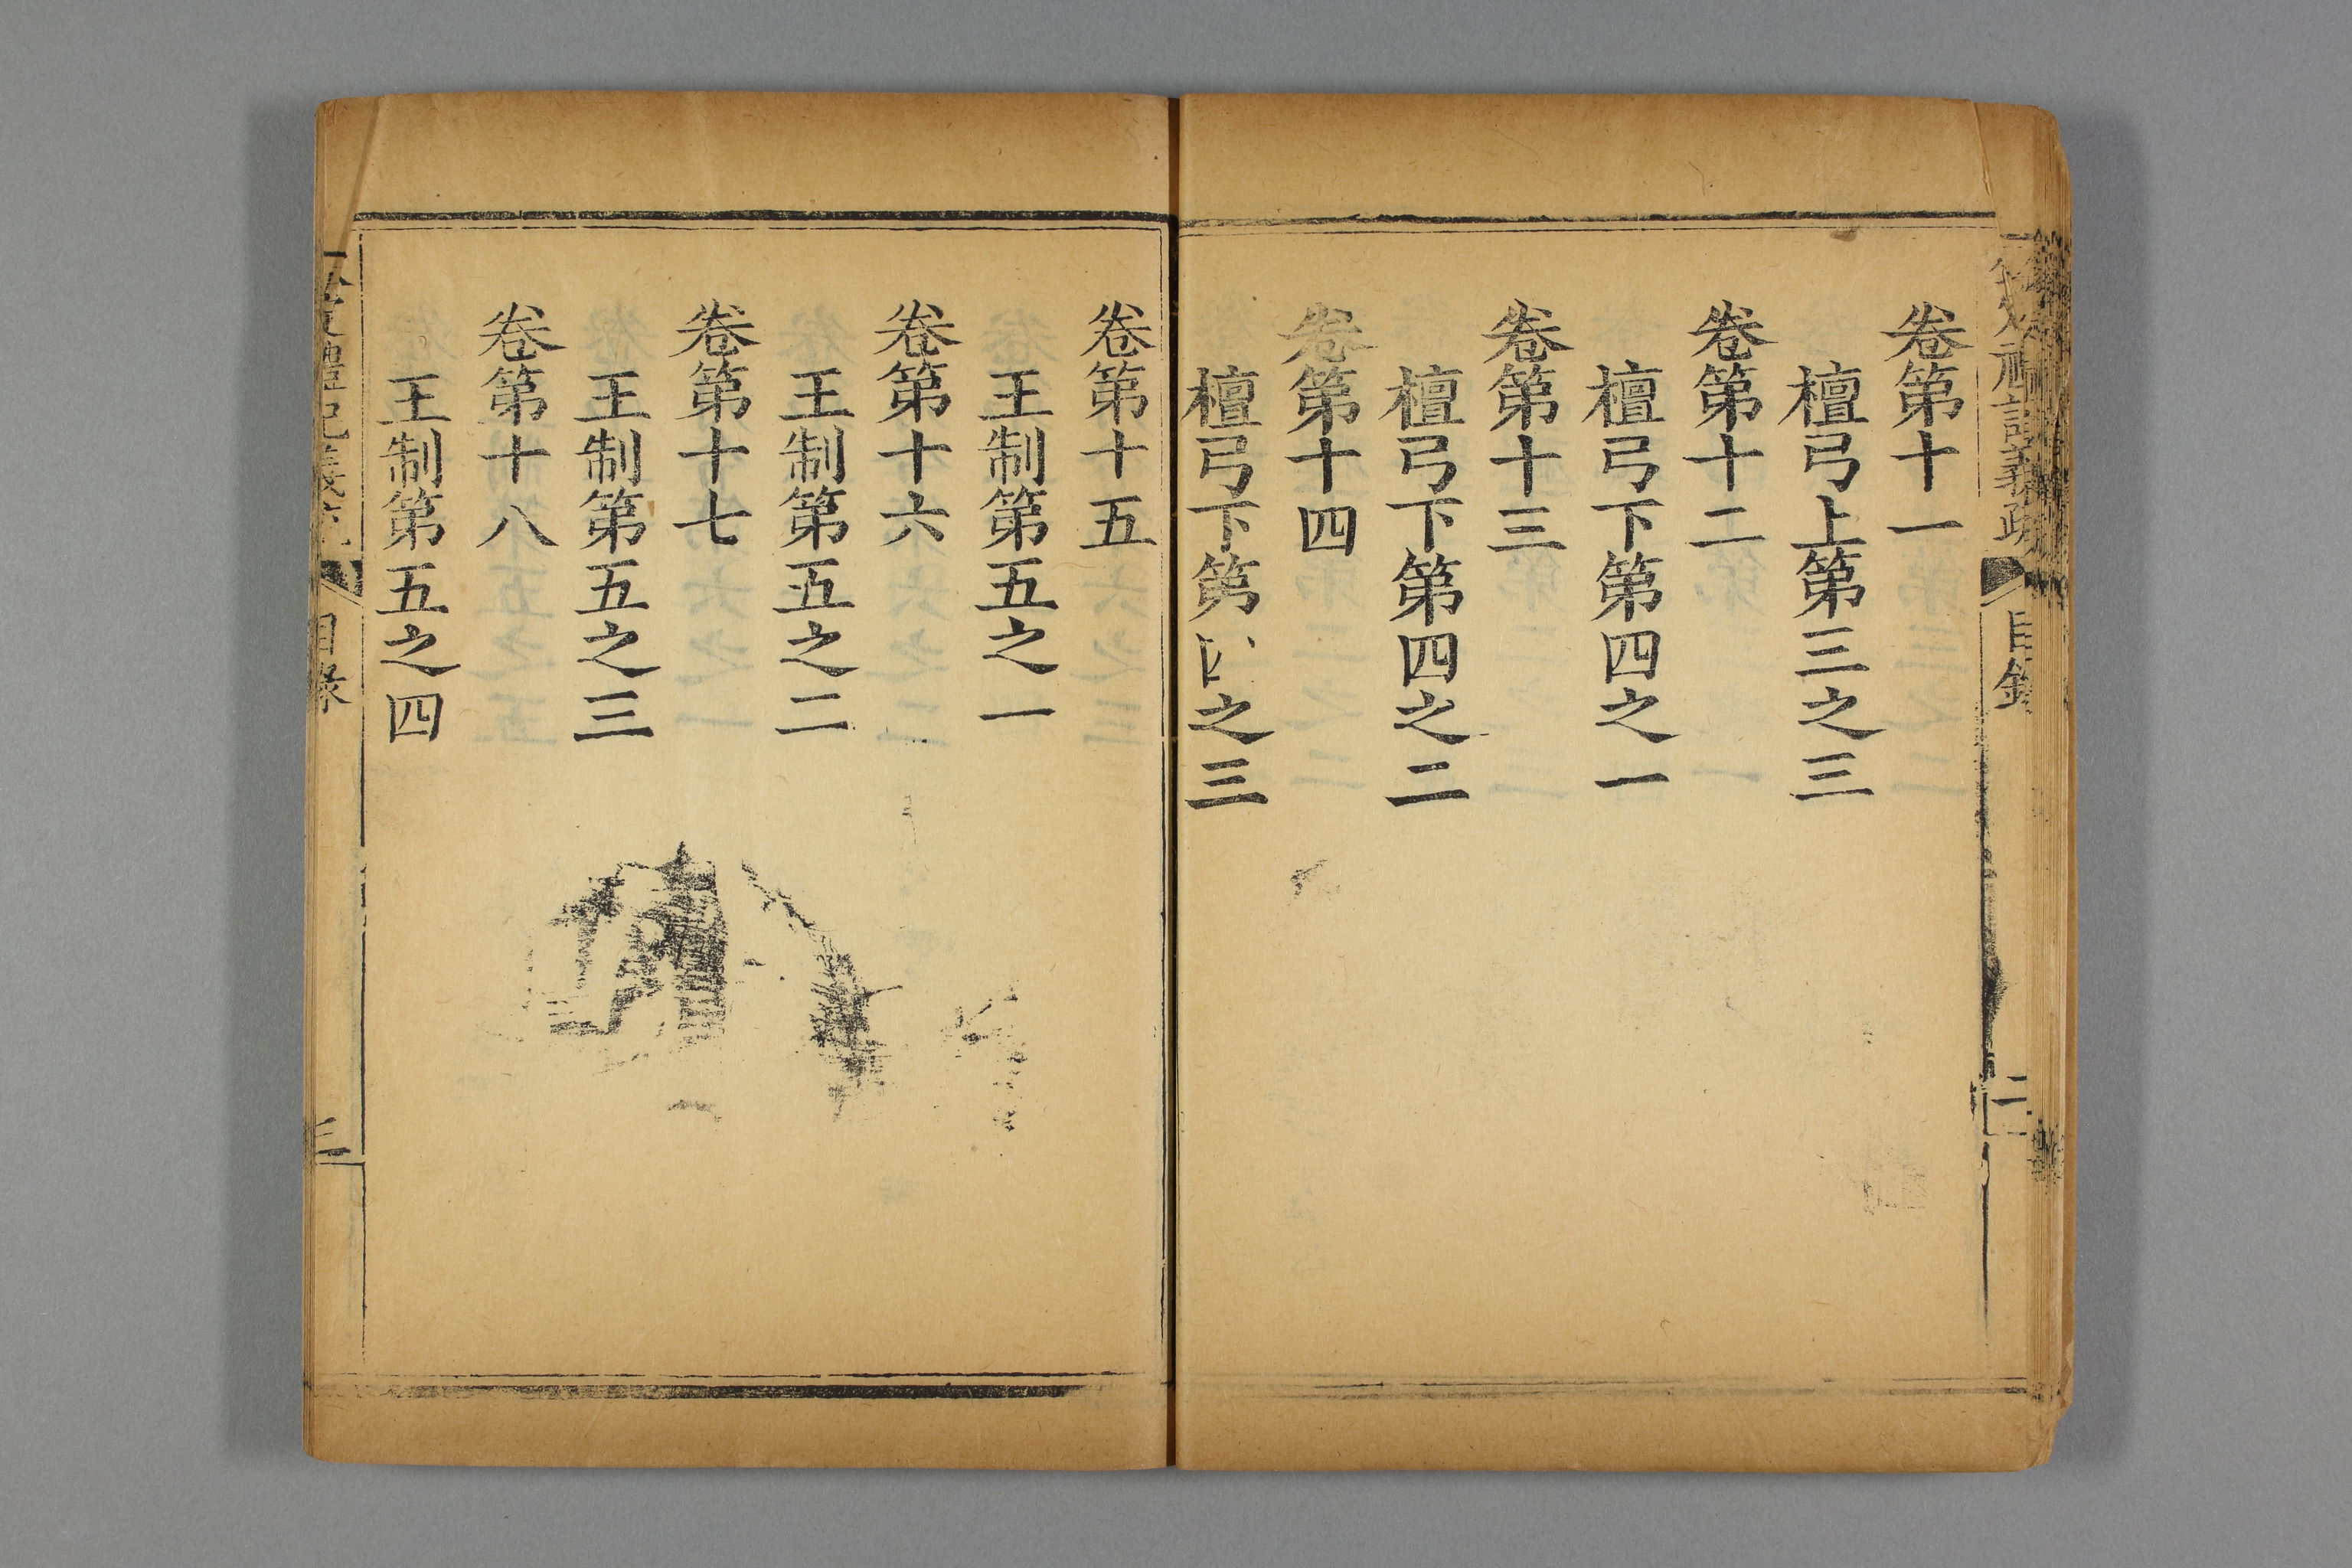 卷第十一
檀弓上第三之三
卷第十二
檀弓下第四之一
卷第十三
檀弓下第四之二
卷第十四
檀弓下第四之三
卷第十五
王制第五之一
卷第十六
王制第五之二
卷第十七
王制第五之三
卷第十八
王制第五之四
禮記義疏
目錄
二
目錄
三